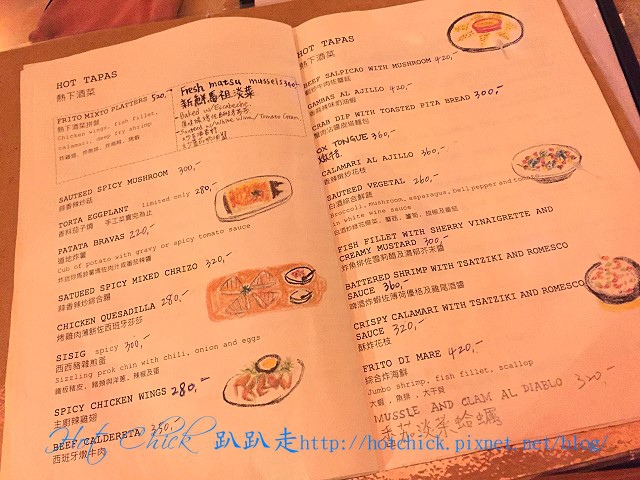 HOT TAPAS
熱下酒菜
FRITO MIXTO PLATTERS 520,-
熱下酒菜拼盤
Chicken wings, fish fillet,
calamari, deep fry shrimp
炸雞翅、炸魚排、炸花枝、炸蝦
Fresh matsu mussels 300,-
新鮮馬祖淡菜
SAUTEED SPICY MUSHROOM 300,-
蒜香辣炒菇
TORTA EGGPLANT limited only 280,-
香料茄子燒 手工菜賣完為止
PATATA BRAVAS 220,-
道地炸薯
Cub of potato with gravy or spicy tomato sauce
SATUEED SPICY MIXED CHRIZO 320,-
蒜香辣炒綜合腸
CHICKEN QUESADILLA 290,-
烤雞肉薄餅佐西班牙莎莎
SISIG spicy 300,-
西西豬辣煎蛋
Sizzling prok chin with chili, onion and eggs
鐵板豬皮、豬頰肉洋蔥、辣椒及蛋
SPICY CHICKEN WINGS 280,-
主廚辣雞翅
BEEF CALDERETA 350,-
西班牙燉牛肉
HOT TAPAS
熱下酒菜
BEEF SALPICAO WITH MUSHROOM 420,-
GAMBAS AL AJILLO 420,-
CRAB DIP WITH TOASTED PITA BREAD 300,-
OX TONGUE 360,-
CALAMARI AL AJILLO 360,-
SAUTEED VEGETAL 260,-
白酒綜合鮮蔬
Broccoli, mushroom, asparagus, bell pepper and tomato
in white wine sauce
FISH FILLET WITH SHERRY VINAIGRETTE AND
CREAMY MUSTARD 300,-
炸魚排佐雪莉醋及濃郁芥末醬
BATTERED SHRIMP WITH TSATZIKI AND ROMESCO
SAUCE 360,-
啤酒炸蝦佐薄荷優格及雞尾酒醬
CRISPY CALAMARI WITH TSATZIKI AND ROMESCO
SAUCE 320,-
酥炸花枝
FRITO DI MARE 420,-
綜合炸海鮮
Jumbo shrimp, fish fillet, scallop
大蝦、魚排、大干貝
MUSSLE AND CLAM AL DIABLO 320,-
Hot Chick 趴趴走http://hotchick.pixnet.net/blog/